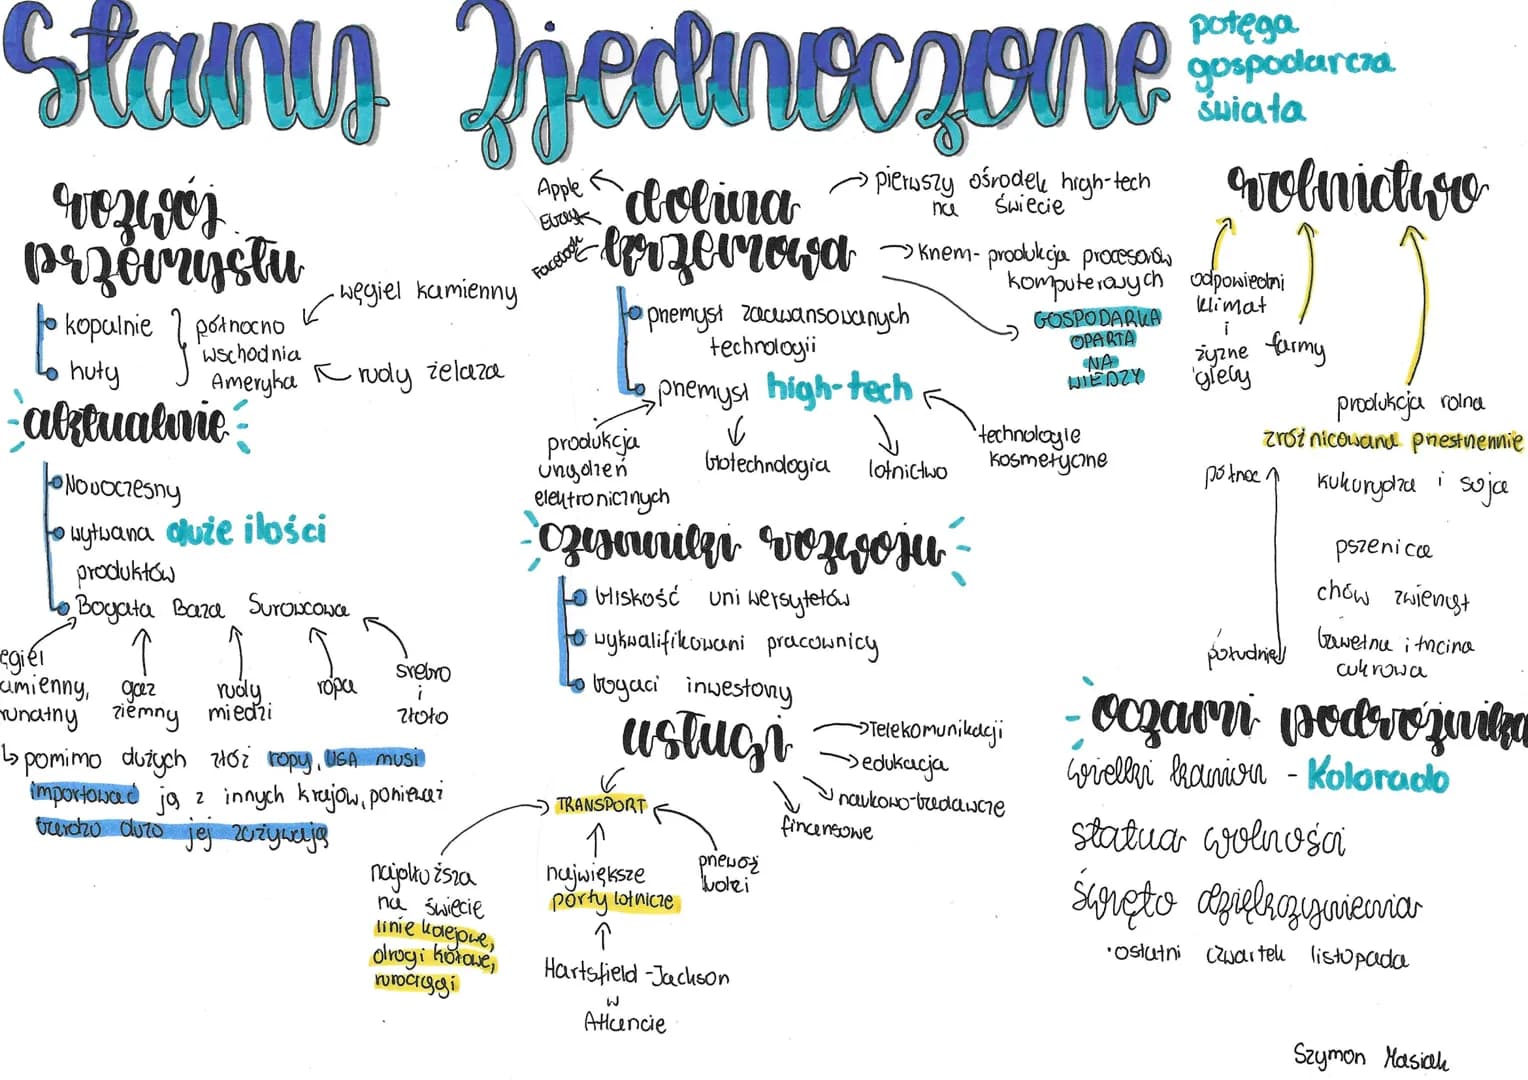 Stany Zjednoczone
potęga
gospodarcza
świata
rozwój
przemysłu
kopalnie
huty
północno
wschodnia
Ameryka
węgiel kamienny
rudy żelaza
aktualnie
Nowoczesny
wytwarza duże ilości
produktów
Bogata Baza Surowcowa
ęgiel
amienny,
runatny
gaz
ziemny
rudy
miedzi
ropa
srebro
i
złoto
pomimo dużych złóż ropy, USA musi
importować ją z innych krajów, ponieważ
bardzo dużo jej zużywają
dolina
krzemowa
Apple
Ebay
Facebook
pierwszy ośrodek high-tech
na świecie
krzem - produkcja procesorów
komputerowych
GOSPODARKA
OPARTA
NA
WIEDZY
przemysł zaawansowanych
technologii
przemysł high-tech
produkcja
urządzeń
elektronicznych
biotechnologia
lotnictwo
technologie
kosmetyczne
czynniki rozwoju
bliskość uniwersytetów
wykwalifikowani pracownicy
bogaci inwestorzy
usługi
telekomunikacji
edukacja
naukowo-badawcze
finansowe
TRANSPORT
najdłuższa
na świecie
linie kolejowe,
drogi kołowe,
rurociągi
największe
porty lotnicze
Hartsfield-Jackson
w
Atlancie
przewóz
ludzi
rolnictwo
odpowiedni
klimat
i
żyzne
gleby
farmy
produkcja rolna
zróżnicowana przestrzennie
północ
kukurydza i soja
pszenica
chów zwierząt
bawełna i trzcina
cukrowa
południe
oczami podróżnika
wielki kanion - Kolorado
statua wolności
święto dziękczynienia
ostatni czwartek listopada
Szymon Masiak